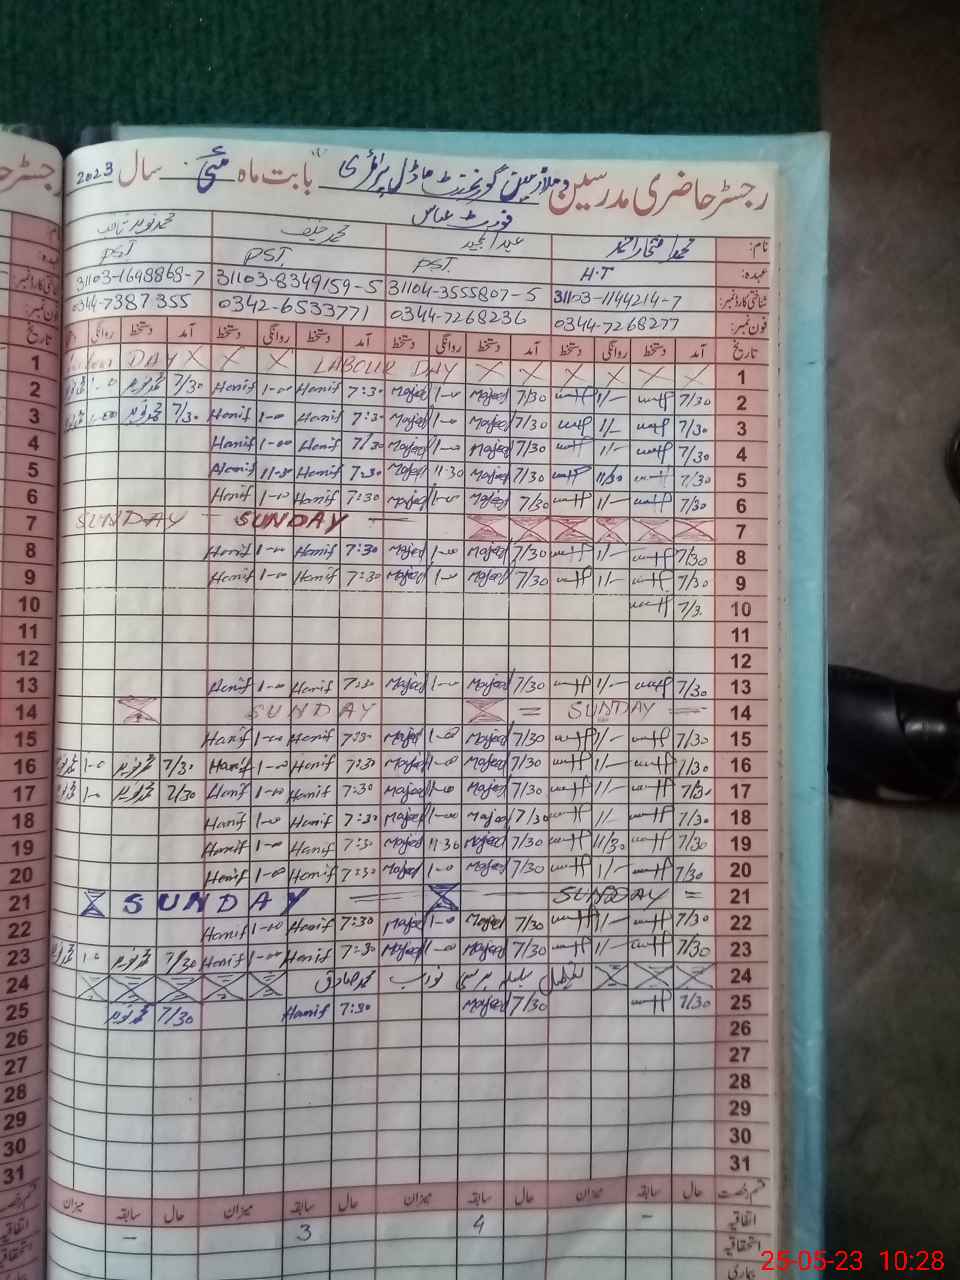 رجسٹر حاضری مدرسین و ملازمین گورنمنٹ ماڈل پرائمری بابت ماہ مئی سال 2023
فورٹ عباس
نام: محمد افتخار احمد عبدالمجید محمد حنیف
عہدہ: H.T PST. PST PST
شناختی کارڈ نمبر: 31103-1144214-7 31104-3555807-5 31103-8349159-5 31103-1698868-7
فون نمبر: 0344-7268277 0344-7268236 0342-6533771 0344-7387355
تاریخ آمد دستخط روانگی دستخط آمد دستخط روانگی دستخط آمد دستخط روانگی دستخط آمد دستخط روانگی تاریخ
1 X X X X X X LABOUR DAY X X X DAY 1
2 7/30 1/- 7/30 Majeed 1-00 Majeed 7:30 Hanif 1-00 Hanif 7/30 1-00 2
3 7/30 1/- 7/30 Majeed 1-00 Majeed 7:30 Hanif 1-00 Hanif 7/30 1-00 3
4 7/30 1/- 7/30 Majeed 1-00 Majeed 7/30 Hanif 1-00 Hanif 4
5 7/30 11/30 7/30 Majeed 11-30 Majeed 7:30 Hanif 11-30 Hanif 5
6 7/30 1/- 7/30 Majeed 1-00 Majeed 7:30 Hanif 1-00 Hanif 6
7 SUNDAY SUNDAY 7
8 7/30 1/- 7/30 Majeed 1-00 Majeed 7:30 Hanif 1-00 Hanif 8
9 7/30 1/- 7/30 Majeed 1-00 Majeed 7:30 Hanif 1-00 Hanif 9
10 7/3. 10
11 11
12 12
13 7/30 1/- 7/30 Majeed 1-00 Majeed 7:30 Hanif 1-00 Hanif 13
14 = SUNDAY = SUNDAY 14
15 7/30 1/- 7/30 Majeed 1-00 Majeed 7:30 Hanif 1-00 Hanif 15
16 7/30 1/- 7/30 Majeed 1-00 Majeed 7:30 Hanif 1-00 Hanif 7/30 1-0 16
17 7/30 1/- 7/30 Majeed 1-00 Majeed 7:30 Hanif 1-00 Hanif 7/30 1-0 17
18 7/30 1/- 7/30 Majeed 1-00 Majeed 7:30 Hanif 1-00 Hanif 18
19 7/30 11/30 7/30 Majeed 11-30 Majeed 7:30 Hanif 1-00 Hanif 19
20 7/30 1/- 7/30 Majeed 1-0 Majeed 7:30 Hanif 1-00 Hanif 20
21 = SUNDAY SUNDAY 21
22 7/30 1/- 7/30 Majeed 1-0 Majeed 7:30 Hanif 1-00 Hanif 22
23 7/30 1/- 7/30 Majeed 1-00 Majeed 7:30 Hanif 1-00 Hanif 7/30 1-0 23
24 بسلسلہ برسی نواب محمد صادق 24
25 7/30 7/30 Majeed 7:30 Hanif 7/30 25
26 26
27 27
28 28
29 29
30 30
31 31
قسم رخصت حال سابقہ میزان حال سابقہ میزان حال سابقہ میزان حال سابقہ میزان
اتفاقیہ - 4 3 -
استحقاقیہ
بیماری
25-05-23 10:28